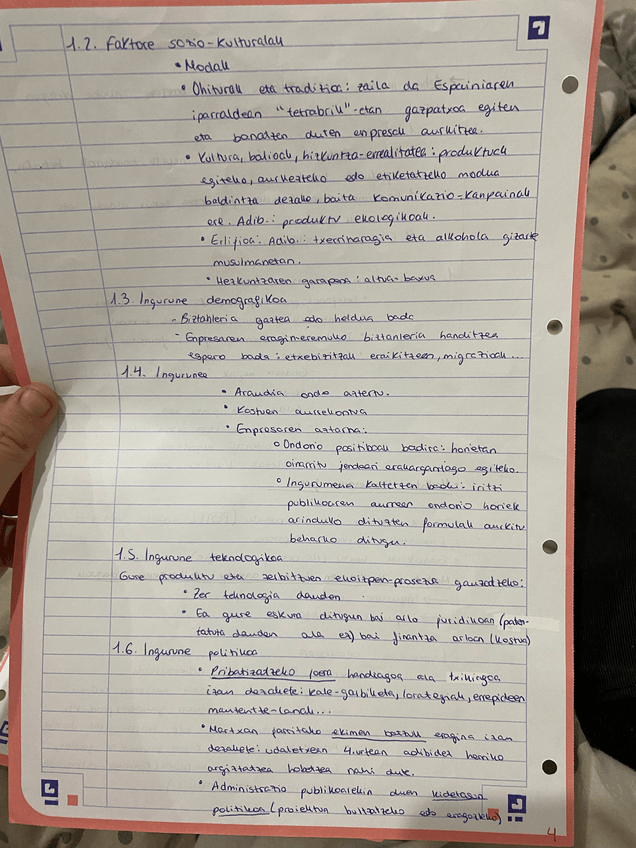 1.2. Faktore sozio-kulturalak
• Modak
• Ohiturak eta tradizioa: zaila da Espainiaren
iparraldean "tetrabrik"-etan gazpatxoa egiten
eta banatzen duten enpresak aurkitzea.
• Kultura, balioak, hizkuntza-errealitatea: produktuak
egiteko, aurkezteko edo etiketatzeko modua
baldintza dezake, baita komunikazio-kanpainak
ere. Adib.: produktu ekologikoak.
• Erlijioa: Adib.: txerrikaragia eta alkohola gizarte
musulmanetan.
• Hezkuntzaren garapena: altua-baxua
1.3. Ingurune demografikoa
- Biztanleria gaztea edo heldua bada
- Enpresaren eragineremuko biztanleria handitzea
espero bada: etxebizitzak eraikitzean, migrazioak...
1.4. Ingurunea
• Araudia ondo aztertu.
• Kostuen aurrekontua
• Enpresaren aztarna:
○ Ondorio positiboak badira: horietan
oinarritu jendeari erakargarriago egiteko.
○ Ingurumena kaltetzen badu: iritzi
publikoaren aurrean ondorio horiek
arinduko dituzten formulak aurkitu
beharko ditugu.
1.5. Ingurune teknologikoa
Gure produktu eta zerbitzuen ekoizpen-prozesua gauzatzeko:
• Zer teknologia dauden
• Ea gure eskura ditugun bai arlo juridikoan (paten-
tatuta dauden ala ez) bai finantza arloan (kostua)
1.6. Ingurune politikoa
• Pribatizatzeko joera handiagoa ala txikiagoa
izan dezakete: kale-garbiketa, lorategiak, errepideen
mantentze-lanak...
• Martxan jarritako ekimen batzuk eragina izan
dezakete: udaletxean 4.urtean adibidez herriko
argiztatzea hobetzea nahi dute.
• Administrazio publikoarekin duen kidetasun
politikoa (proiektua bultzatzeko edo eragozteko)
4